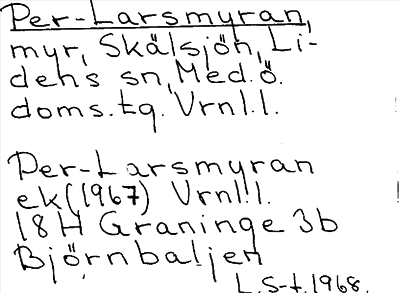 Per-Larsmyran,
myr, Skälsjön, Li-
dens sn, Med.ö.
doms.tg. Vrnl.l.
Per-Larsmyran
ek (1967) Vrnl.l.
18H Graninge 3b
Björnbaljen
L.S-t. 1968.